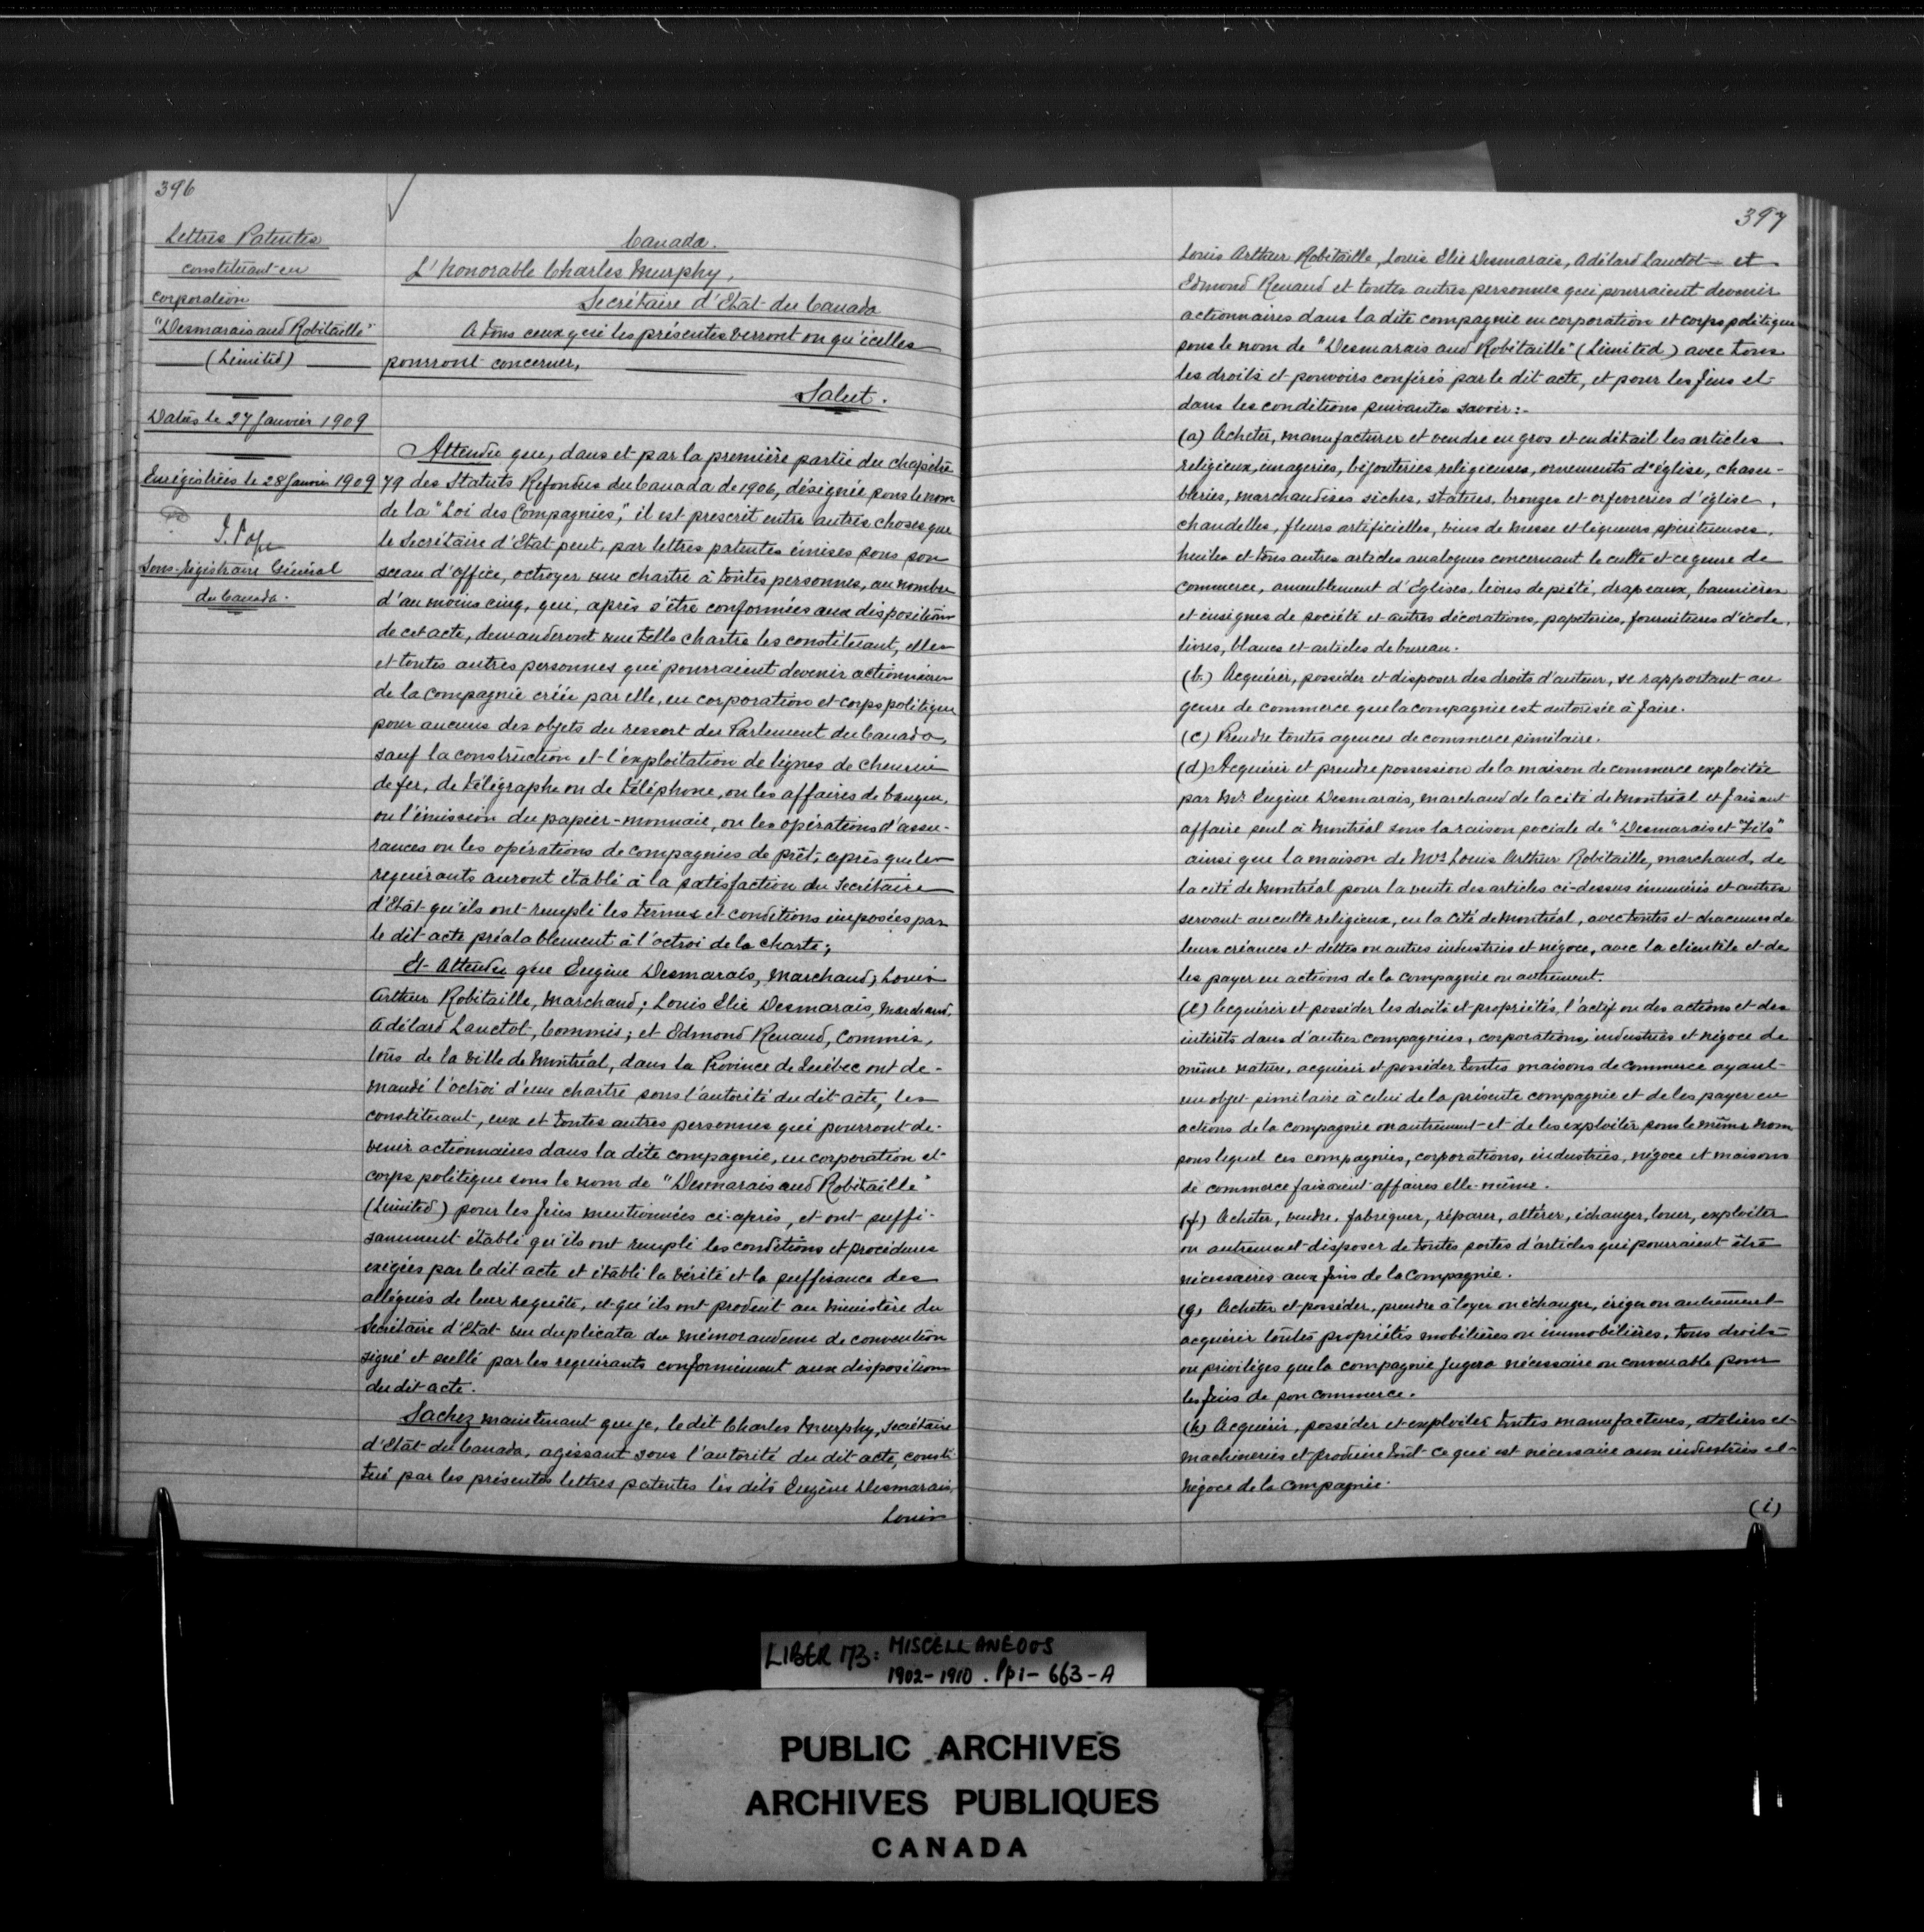 396
Lettres Patentes
constituant en
corporation
"Desmarais and Robitaille"
(Limited)
Datées le 27 Janvier 1909
Enrégistrées le 28 Janvier 1909
J. Pope
Sous-registraire Général
du Canada.
Canada.
L'honorable Charles Murphy,
Secrétaire d'Etat du Canada
A tous ceux qui les présentes verront ou qu'icelles
pourront concerner,
Salut.
Attendu que, dans et par la première partie du chapitre
79 des Statuts Refondus du Canada de 1906, désignée sous le nom
de la "Loi des Compagnies," il est prescrit entre autres choses que
le Secrétaire d'Etat peut, par lettres patentes émises sous son
sceau d'office, octroyer une chartre à toutes personnes, au nombre
d'au moins cinq, qui, après s'être conformées aux dispositions
de cet acte, demanderont une telle chartre les constituant, elles
et toutes autres personnes qui pourraient devenir actionnaires
de la compagnie créée par elle, en corporation et corps politique
pour aucuns des objets du ressort du Parlement du Canada,
sauf la construction et l'exploitation de lignes de chemin
de fer, de télégraphe ou de téléphone, ou les affaires de banque,
ou l'émission du papier-monnaie, ou les opérations d'assu-
rances ou les opérations de compagnies de prêt; après que les
requérants auront établi à la satisfaction du Secrétaire
d'Etat qu'ils ont rempli les termes et conditions imposées par
le dit acte préalablement à l'octroi de la charte;
Et Attendu que Eugène Desmarais, marchand; Louis
Arthur Robitaille, marchand; Louis Elie Desmarais, marchand,
Adélard Lanctot, commis; et Edmond Renaud, commis,
tous de la ville de Montréal, dans la Province de Québec ont de-
mandé l'octroi d'une chartre sous l'autorité du dit acte, les
constituant, eux et toutes autres personnes qui pourront de-
venir actionnaires dans la dite compagnie, en corporation et
corps politique sous le nom de "Desmarais and Robitaille"
(Limited) pour les fins mentionnées ci-après, et ont suffi-
samment établi qu'ils ont rempli les conditions et procédures
exigées par le dit acte et établi la vérité et la suffisance des
allégués de leur requête, et qu'ils ont produit au Ministère du
Secrétaire d'Etat un duplicata du mémorandum de convention
signé et scellé par les requérants conformément aux dispositions
du dit acte.
Sachez maintenant que je, le dit Charles Murphy, Secrétaire
d'Etat du Canada, agissant sous l'autorité du dit acte, consti-
tué par les présentes lettres patentes les dits Eugène Desmarais,
Louis
397
Louis Arthur Robitaille, Louis Elie Desmarais, Adélard Lanctot et
Edmond Renaud et toutes autres personnes qui pourraient devenir
actionnaires dans la dite compagnie en corporation et corps politique
sous le nom de "Desmarais and Robitaille" (Limited) avec tous
les droits et pouvoirs conférés par le dit acte, et pour les fins et
dans les conditions suivantes savoir:-
(a) Acheter, manufacturer et vendre en gros et en détail les articles
religieux, imageries, bijouteries religieuses, ornements d'église, chasu-
bleries, marchandises sèches, statues, bronzes et orfevreries d'église,
chandelles, fleurs artificielles, vins de messe et liqueurs spiritueuses,
huiles et tous autres articles analogues concernant le culte et ce genre de
commerce, ameublement d'Eglises, livres de piété, drapeaux, bannières
et insignes de société et autres décorations, papeteries, fournitures d'école,
livres, blancs et articles de bureau.
(b) Acquérir, posséder et disposer des droits d'auteur, se rapportant au
genre de commerce que la compagnie est autorisée à faire.
(c) Prendre toutes agences de commerce similaire.
(d) Acquérir et prendre possession de la maison de commerce exploitée
par Mr. Eugène Desmarais, marchand de la cité de Montréal et faisant
affaire seul à Montréal sous la raison sociale de "Desmarais et Fils"
ainsi que la maison de Mr. Louis Arthur Robitaille, marchand, de
la cité de Montréal pour la vente des articles ci-dessus énumérés et autres
servant au culte religieux, en la Cité de Montréal, avec toutes et chacunes de
leurs créances et dettes ou autres industries et négoce, avec la clientèle et de
les payer en actions de la compagnie ou autrement.
(e) Acquérir et posséder les droits et propriétés, l'actif ou des actions et des
intérêts dans d'autres compagnies, corporations, industries et négoce de
même nature, acquérir et posséder toutes maisons de commerce ayant
un objet similaire à celui de la présente compagnie et de les payer en
actions de la compagnie ou autrement et de les exploiter sous le même nom
sous lequel ces compagnies, corporations, industries, négoce et maisons
de commerce faisaient affaires elle-même.
(f) Acheter, vendre, fabriquer, réparer, altérer, échanger, louer, exploiter
ou autrement disposer de toutes sortes d'articles qui pourraient être
nécessaires aux fins de la compagnie.
(g) Acheter et posséder, prendre à loyer ou échanger, ériger ou autrement
acquérir toutes propriétés mobilières ou immobilières, tous droits
ou privilèges que la compagnie jugera nécessaire ou convenable pour
les fins de son commerce.
(h) Acquérir, posséder et exploiter toutes manufactures, ateliers et
machineries et produire tout ce qui est nécessaire aux industries et
négoce de la compagnie.
(i)
LIBER 173: MISCELLANEOUS
1902-1910. Pp 1-663-A
PUBLIC ARCHIVES
ARCHIVES PUBLIQUES
CANADA